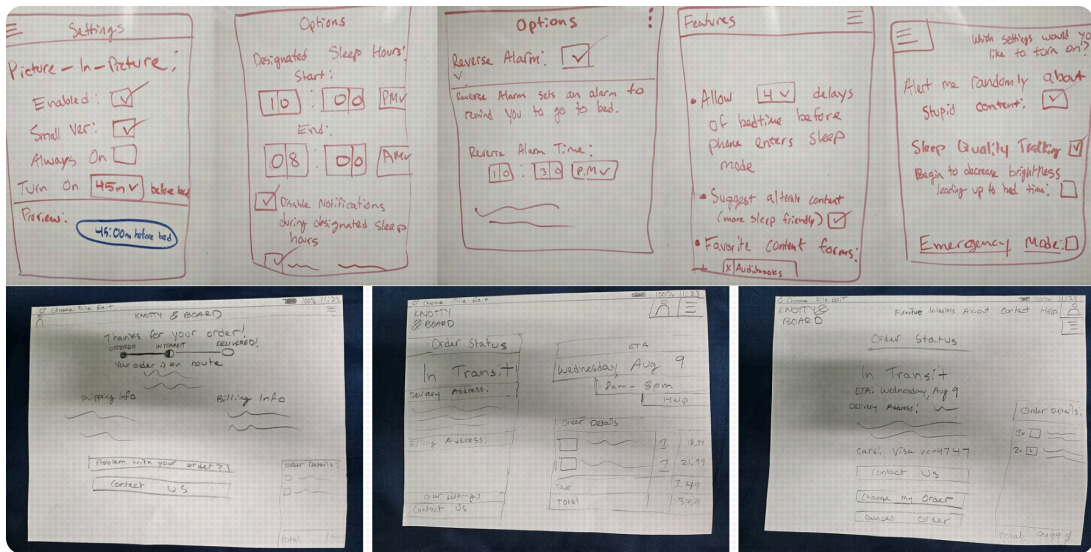 Settings
Picture-In-Picture:
Enabled:
Small Ver:
Always On
Turn On 45m before bed
Preview:
45:00m before bed
Options
Designated Sleep Hours:
Start:
10 : 00 PM
End:
08 : 00 AM
Disable Notifications
during designated sleep
hours
Options
Reverse Alarm:
Reverse Alarm sets an alarm to
remind you to go to bed.
Reverse Alarm Time:
10 : 30 P.M
Features
Allow 4 delays
of bedtime before
phone enters sleep
mode
Suggest altrate content
(more sleep friendly)
Favorite content forms:
x Audiobooks
Which settings would yo
like to turn on?
Alert me randomly about
stupid content:
Sleep Quality Tracking
Begin to decrease brightness
leading up to bed time:
Emergency Mode:
Chrome File Edit 100% 11:23
KNOTTY & BOARD
Thanks for your order!
ORDERED IN TRANSIT DELIVERED!
Your order is en route
Shipping Info
Billing Info
Problem with your order?
Contact US
Order Details:
total
Chrome File Edit 100% 11:23
KNOTTY
& BOARD
Order Status
In Transit
Delivery Address:
Billing Address:
Contact US
ETA
Wednesday, Aug 9
8pm
Help
Order Details
1
1 21.99
Tax 1.49
Total
Chrome File Edit 100% 11:23
KNOTTY &
BOARD
About Contact Help
Order Status
In Transit
ETA: Wednesday, Aug 9
Delivery Address:
Card: Visa xx-4747
Contact Us
Change my Order
Cancel Order
Order Details:
1x
2x
Total: